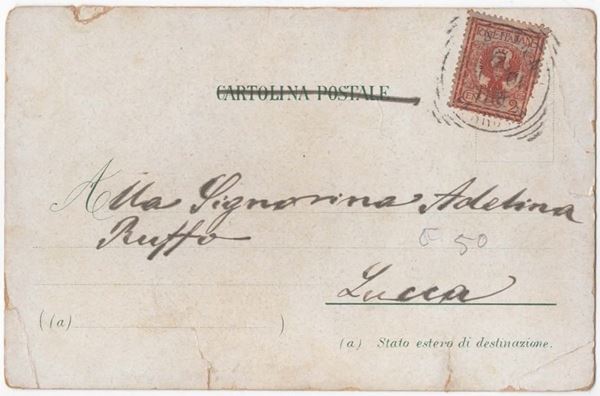 CARTOLINA POSTALE
Alla Signorina Adelina
Ruffo
€ 50
Lucca
( (a) )
(a) Stato estero di destinazione.